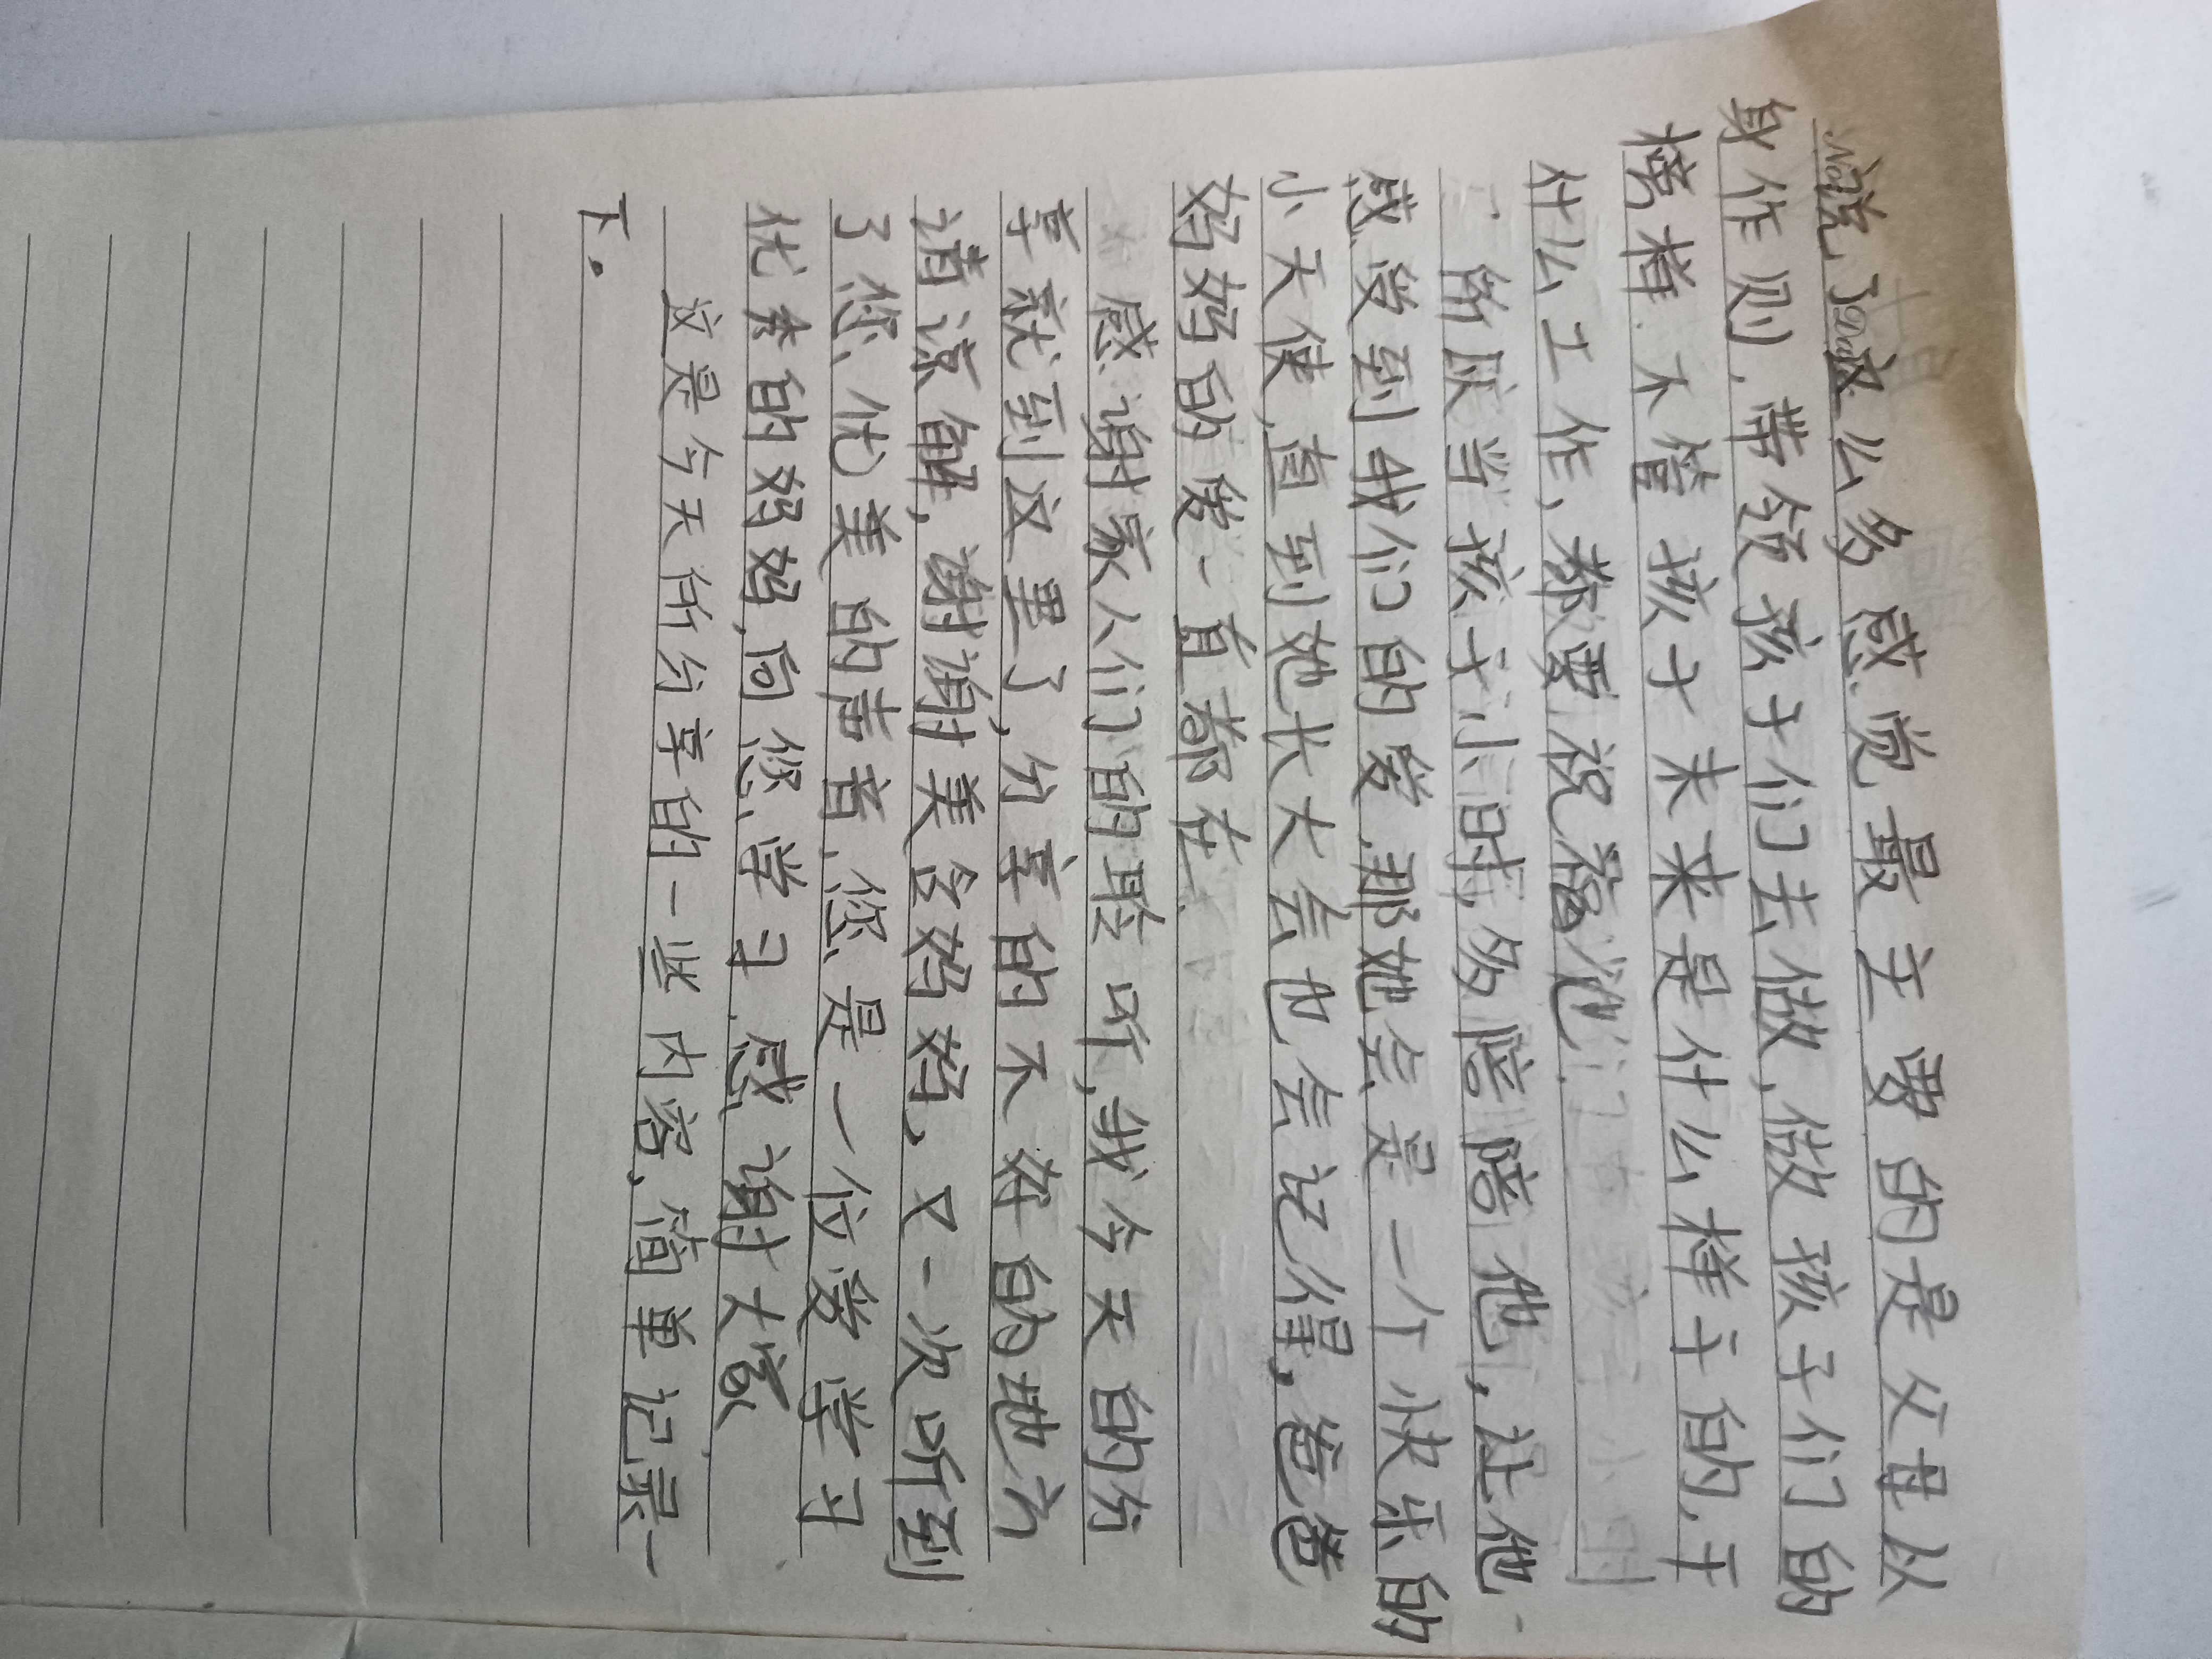 说了这么多感觉最主要的是父母从
身作则,带领孩子们去做,做孩子们的
榜样.不管孩子未来是什么样子的,干
什么工作,都要祝福他
所以当孩子小时,多陪陪他,让他
感受到我们的爱.那她会是一个快乐的
小天使,直到她长大会也会记得,爸爸
妈妈的爱一直都在.
感谢家人们的聆听,我今天的分
享就到这里了,分享的不好的地方
请谅解,谢谢美含妈妈,又一次听到
了您优美的声音,您是一位爱学习
优秀的妈妈,向您学习.感谢大家
这是今天所分享的一些内容,简单记录一
下。